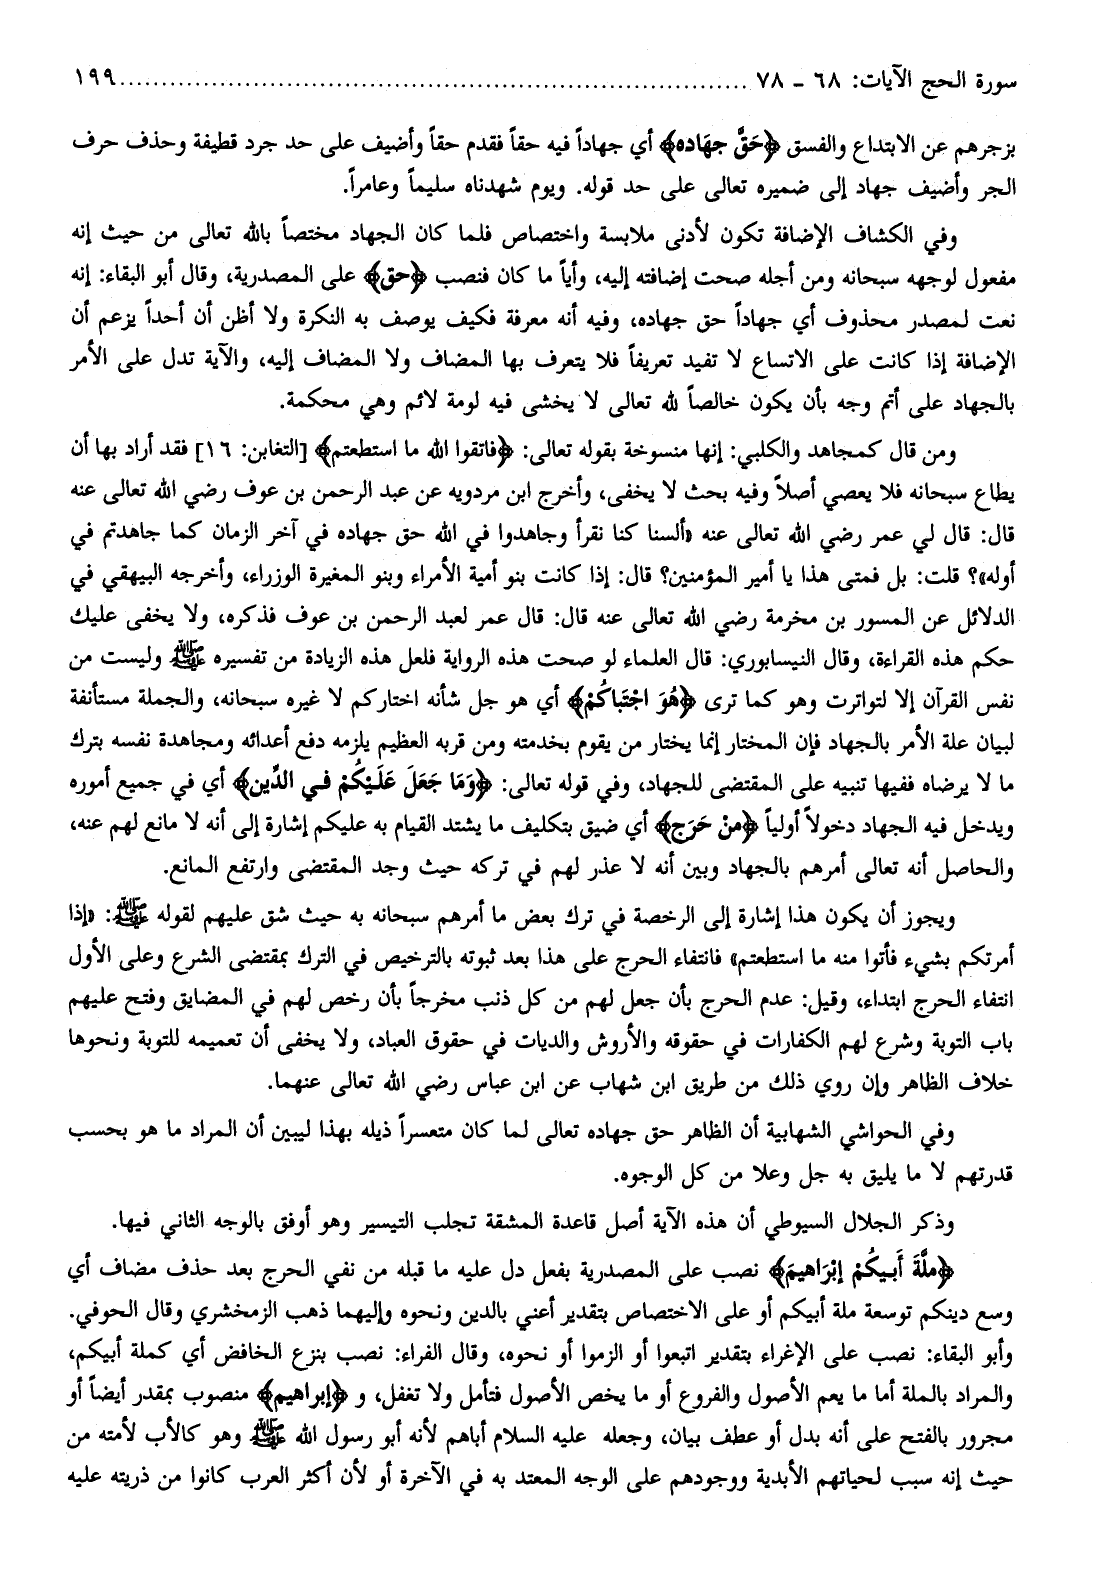 سورة الحج الآيات: ٦٨ - ٧٨ ........................................................................... ١٩٩
بزجرهم عن الابتداع والفسق ﴿حَقَّ جهَاده﴾ أي جهاداً فيه حقاً فقدم حقاً وأضيف على حد جرد قطيفة وحذف حرف
الجر وأضيف جهاد إلى ضميره تعالى على حد قوله. ويوم شهدناه سليماً وعامراً.
وفي الكشاف الإضافة تكون لأدنى ملابسة واختصاص فلما كان الجهاد مختصاً بالله تعالى من حيث إنه
مفعول لوجهه سبحانه ومن أجله صحت إضافته إليه، وأياً ما كان فنصب ﴿حق﴾ على المصدرية، وقال أبو البقاء: إنه
نعت لمصدر محذوف أي جهاداً حق جهاده، وفيه أنه معرفة فكيف يوصف به النكرة ولا أظن أن أحداً يزعم أن
الإضافة إذا كانت على الاتساع لا تفيد تعريفاً فلا يتعرف بها المضاف ولا المضاف إليه، والآية تدل على الأمر
بالجهاد على أتم وجه بأن يكون خالصاً لله تعالى لا يخشى فيه لومة لائم وهي محكمة.
ومن قال كمجاهد والكلبي: إنها منسوخة بقوله تعالى: ﴿فاتقوا الله ما استطعتم﴾ [التغابن: ١٦] فقد أراد بها أن
يطاع سبحانه فلا يعصي أصلاً وفيه بحث لا يخفى، وأخرج ابن مردويه عن عبد الرحمن بن عوف رضي الله تعالى عنه
قال: قال لي عمر رضي الله تعالى عنه «ألسنا كنا نقرأ وجاهدوا في الله حق جهاده في آخر الزمان كما جاهدتم في
أوله»؟ قلت: بل فمتى هذا يا أمير المؤمنين؟ قال: إذا كانت بنو أمية الأمراء وبنو المغيرة الوزراء، وأخرجه البيهقي في
الدلائل عن المسور بن مخرمة رضي الله تعالى عنه قال: قال عمر لعبد الرحمن بن عوف فذكره، ولا يخفى عليك
حكم هذه القراءة، وقال النيسابوري: قال العلماء لو صحت هذه الرواية فلعل هذه الزيادة من تفسيره ﷺ وليست من
نفس القرآن إلا لتواترت وهو كما ترى ﴿هُوَ اجْتَباكُمْ﴾ أي هو جل شأنه اختاركم لا غيره سبحانه، والجملة مستأنفة
لبيان علة الأمر بالجهاد فإن المختار إنما يختار من يقوم بخدمته ومن قربه العظيم يلزمه دفع أعدائه ومجاهدة نفسه بترك
ما لا يرضاه ففيها تنبيه على المقتضى للجهاد، وفي قوله تعالى: ﴿وَمَا جَعَلَ عَلَيْكُمْ في الدِّين﴾ أي في جميع أموره
ويدخل فيه الجهاد دخولاً أولياً ﴿منْ حَرَج﴾ أي ضيق بتكليف ما يشتد القيام به عليكم إشارة إلى أنه لا مانع لهم عنه،
والحاصل أنه تعالى أمرهم بالجهاد وبين أنه لا عذر لهم في تركه حيث وجد المقتضى وارتفع المانع.
ويجوز أن يكون هذا إشارة إلى الرخصة في ترك بعض ما أمرهم سبحانه به حيث شق عليهم لقوله ﷺ: «إذا
أمرتكم بشيء فأتوا منه ما استطعتم» فانتفاء الحرج على هذا بعد ثبوته بالترخيص في الترك بمقتضى الشرع وعلى الأول
انتفاء الحرج ابتداء، وقيل: عدم الحرج بأن جعل لهم من كل ذنب مخرجاً بأن رخص لهم في المضايق وفتح عليهم
باب التوبة وشرع لهم الكفارات في حقوقه والأروش والديات في حقوق العباد، ولا يخفى أن تعميمه للتوبة ونحوها
خلاف الظاهر وإن روي ذلك من طريق ابن شهاب عن ابن عباس رضي الله تعالى عنهما.
وفي الحواشي الشهابية أن الظاهر حق جهاده تعالى لما كان متعسراً ذيله بهذا ليبين أن المراد ما هو بحسب
قدرتهم لا ما يليق به جل وعلا من كل الوجوه.
وذكر الجلال السيوطي أن هذه الآية أصل قاعدة المشقة تجلب التيسير وهو أوفق بالوجه الثاني فيها.
﴿ملَّةَ أَبيكُمْ إبْرَاهيمَ﴾ نصب على المصدرية بفعل دل عليه ما قبله من نفي الحرج بعد حذف مضاف أي
وسع دينكم توسعة ملة أبيكم أو على الاختصاص بتقدير أعني بالدين ونحوه وإليهما ذهب الزمخشري وقال الحوفي.
وأبو البقاء: نصب على الإغراء بتقدير اتبعوا أو الزموا أو نحوه، وقال الفراء: نصب بنزع الخافض أي كملة أبيكم،
والمراد بالملة أما ما يعم الأصول والفروع أو ما يخص الأصول فتأمل ولا تغفل، و ﴿إبراهيم﴾ منصوب بمقدر أيضاً أو
مجرور بالفتح على أنه بدل أو عطف بيان، وجعله عليه السلام أباهم لأنه أبو رسول الله ﷺ وهو كالأب لأمته من
حيث إنه سبب لحياتهم الأبدية ووجودهم على الوجه المعتد به في الآخرة أو لأن أكثر العرب كانوا من ذريته عليه